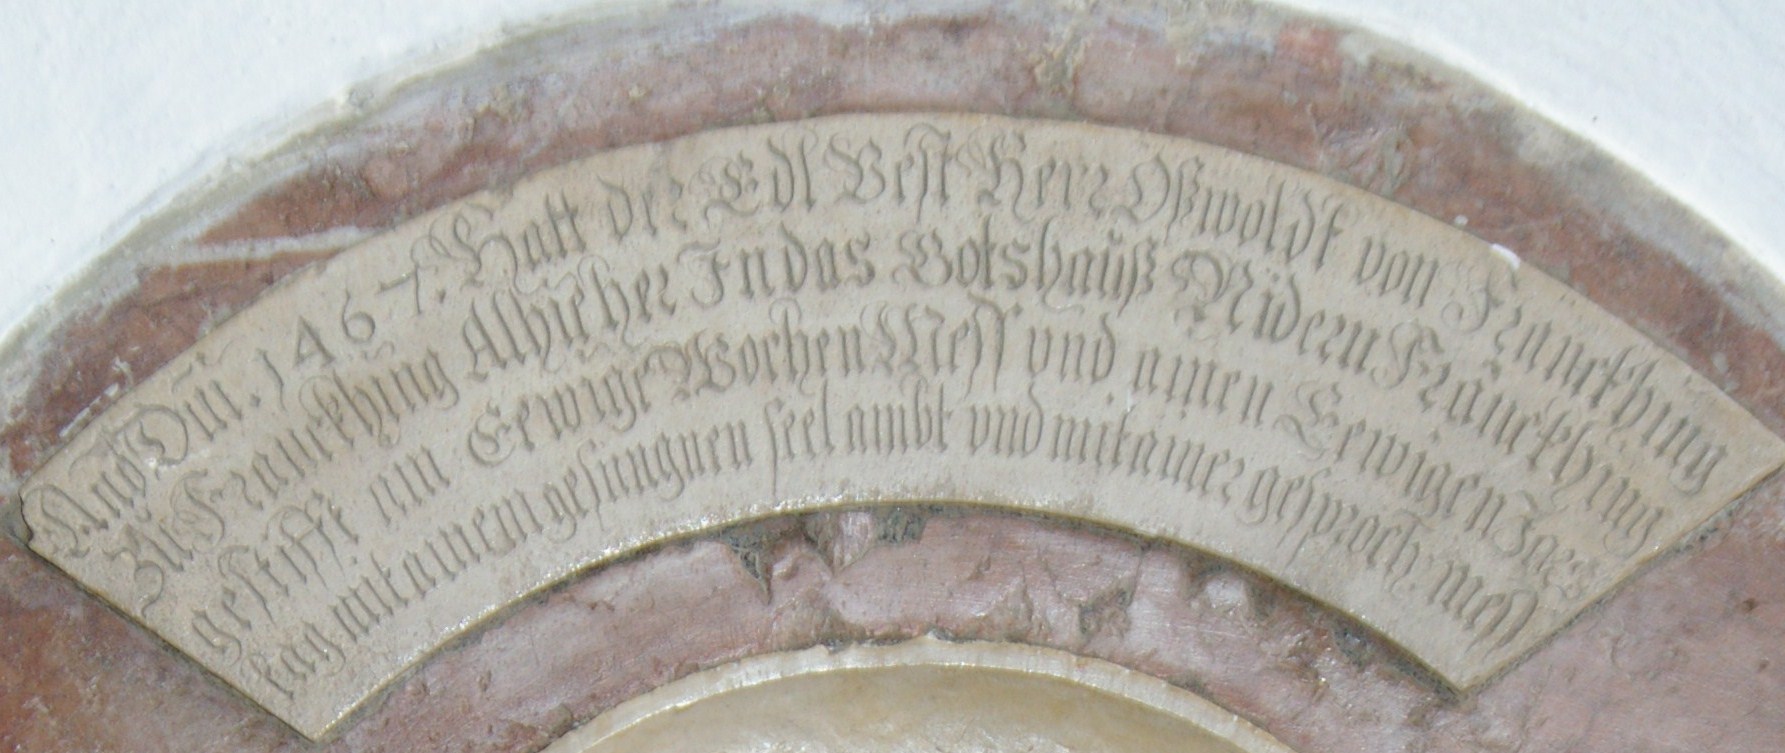 Año Dni. 1467. Hatt der Edl Vest Herr Oßwoldt von Franckhing
Zu Franckhing Alhieher In das Gotshauß Nidern Franckhing
gestifft ain Eewige Wochen Mess vnd ainen Eewigen Jars
tag mit ainem gesungnen seel ambt vnd mit ainer gesproch: mess